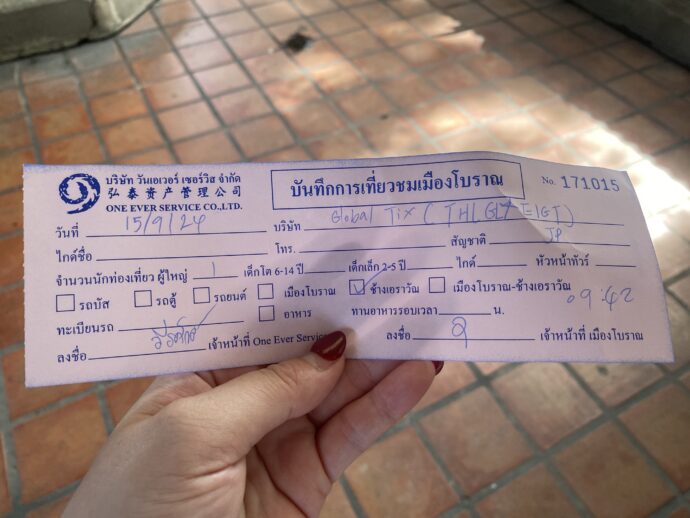 บริษัท วันเอเวอร์ เซอร์วิส จำกัด
弘泰资产管理公司
ONE EVER SERVICE CO.,LTD.
บันทึกการเที่ยวชมเมืองโบราณ
No. 171015
วันที่ 15/9/24 บริษัท Global Tix (THLGLT EIGT)
ไกด์ชื่อ โทร. สัญชาติ JP
จำนวนนักท่องเที่ยว ผู้ใหญ่ 1 เด็กโต 6-14 ปี เด็กเล็ก 2-5 ปี ไกด์ หัวหน้าทัวร์
รถบัส รถตู้ รถยนต์ เมืองโบราณ ช้างเอราวัณ เมืองโบราณ-ช้างเอราวัณ
ทะเบียนรถ อาหาร ทานอาหารรอบเวลา น. 09:42
ลงชื่อ เจ้าหน้าที่ One Ever Service ลงชื่อ เจ้าหน้าที่ เมืองโบราณ